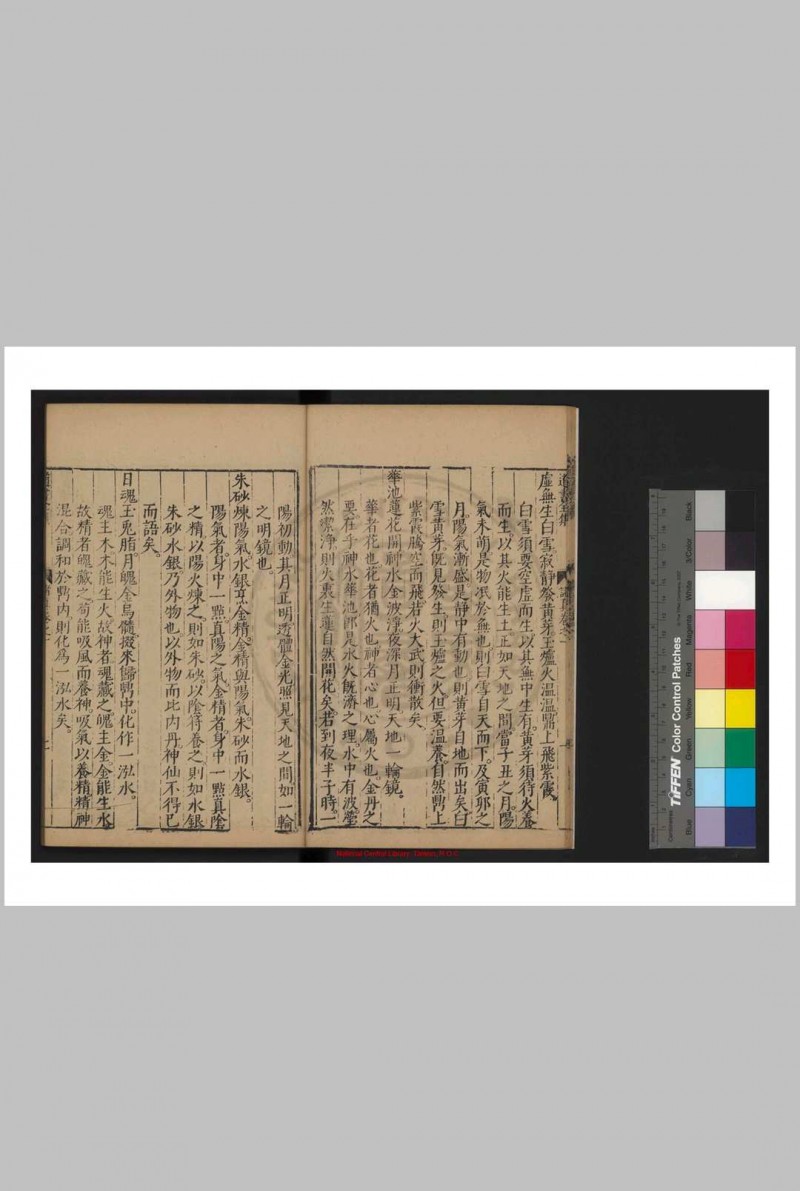 虛無生白雪寂靜發黃芽玉爐火溫溫鼎上飛紫霞
白雪須要空虛而生以其無中生有黃芽須待火養
而生以其火能生土正如天地之間當子丑之月陽
氣未萌是物泯於無也則白雪自天而下及寅卯之
月陽氣漸盛是靜中有動也則黃芽自地而出矣白
雪黃芽既見發生則玉爐之火但要溫養自然鼎上
紫霞騰空而飛若火大武則衝散矣
華池蓮花開神水金波淨夜深月正明天地一輪鏡
華者花也花者猶火也神者心也心屬火也金丹之
要在乎神水華池即是水火既濟之理水中有波瑩
然潔淨則火裏生蓮自然開花矣若到夜半子時一
陽初動其月正明透體金光照見天地之間如一輪
之明鏡也
朱砂煉陽氣水銀烹金精金精與陽氣朱砂而水銀
陽氣者身中一點真陽之氣金精者身中一點真陰
之精以陽火煉之則如朱砂以陰符養之則如水銀
朱砂水銀乃外物也以外物而比內丹神仙不得已
而語矣
日魂玉兔脂月魄金烏髓掇來歸鼎中化作一泓水
魂主木木能生火故神者魂藏之魄主金金能生水
故精者魄藏之苟能吸風而養神吸氣以養精精神
混合調和於鼎內則化爲一泓水矣
National Central Library, Taiwan, R.O.C
TIFFEN Color Control Patches
Blue
Cyan
Green
Yellow
Red
Magenta
White
3/Color
Black